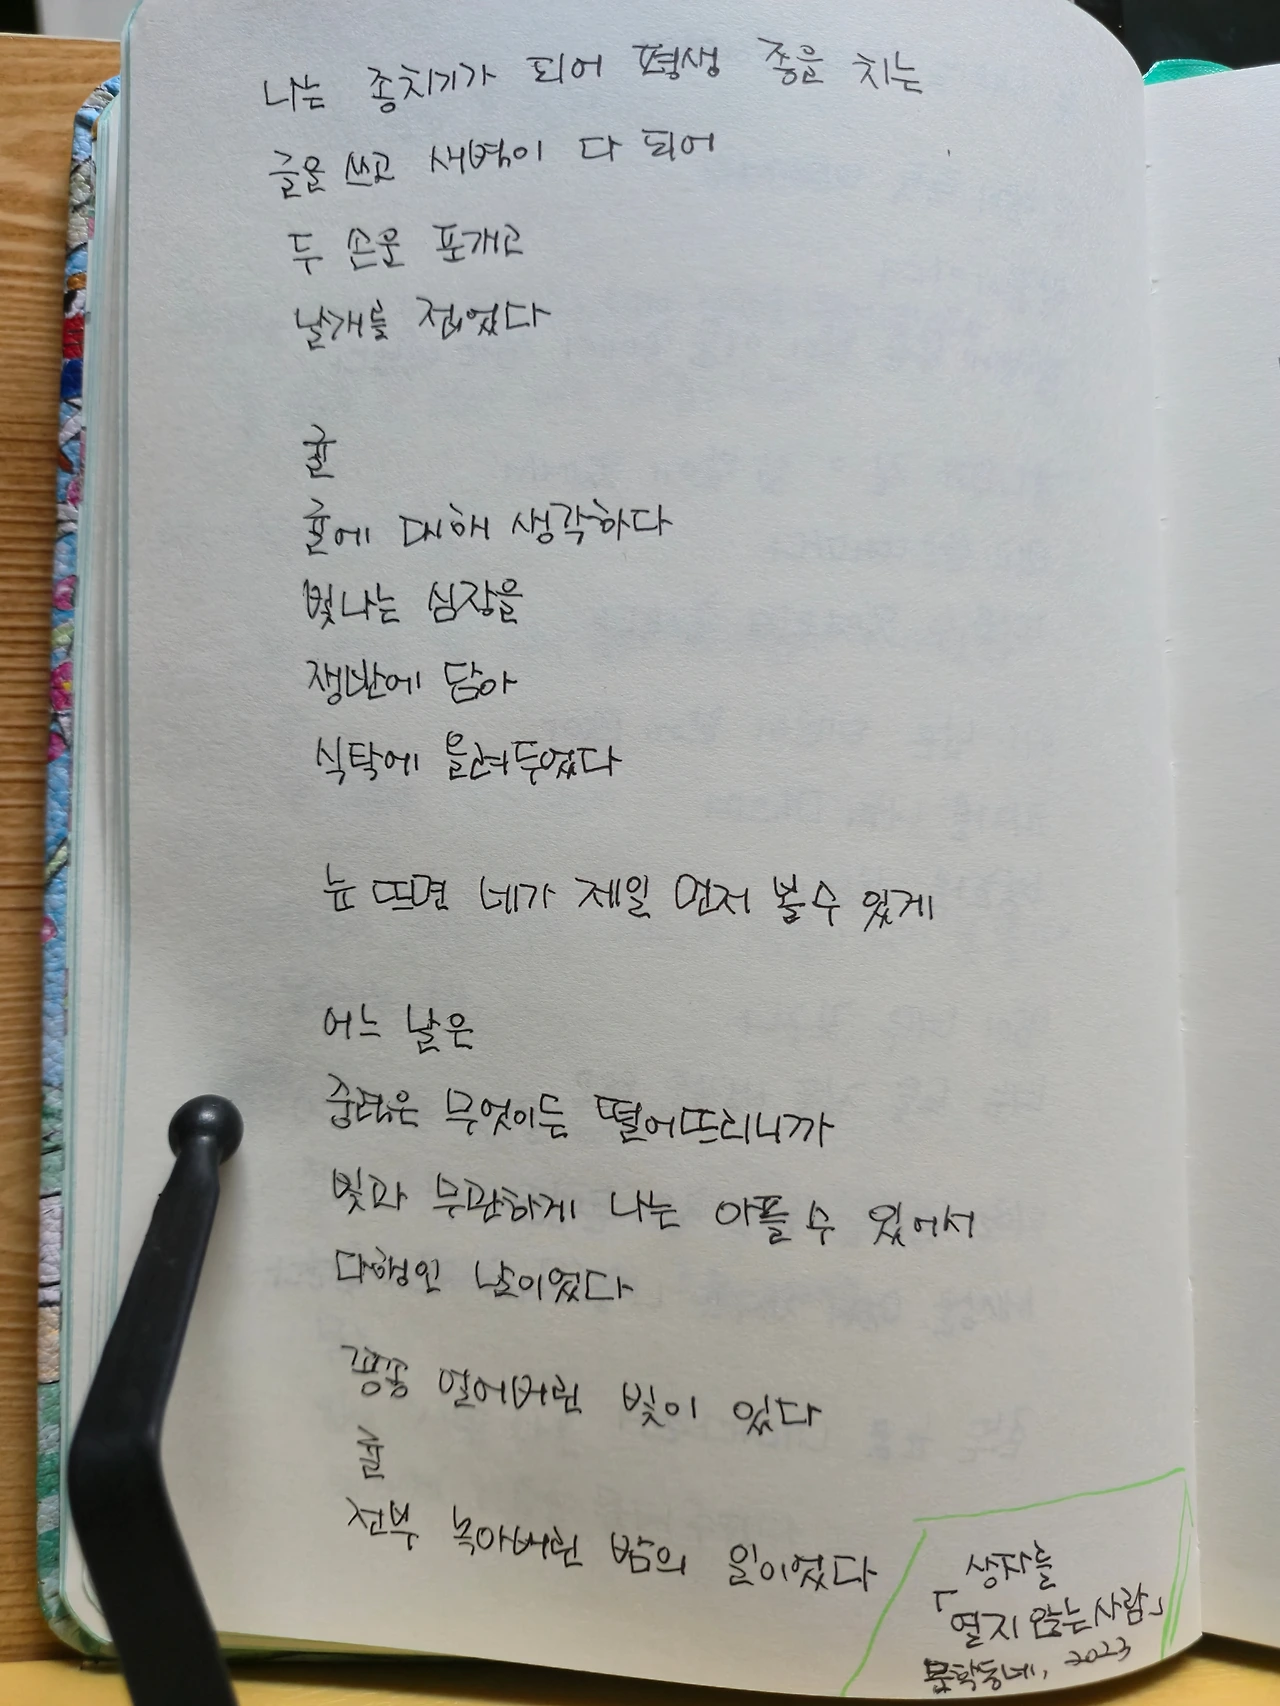 나는 종치기가 되어 평생 종을 치는
글을 쓰고 새벽이 다 되어
두 손을 포개고
날개를 접었다
귤
귤에 대해 생각하다
빛나는 심장을
쟁반에 담아
식탁에 올려두었다
눈 뜨면 네가 제일 먼저 볼 수 있게
어느 날은
중력은 무엇이든 떨어뜨리니까
빛과 무관하게 나는 아플 수 있어서
다행인 날이었다
꽁꽁 얼어버린 빛이 있다
귤
전부 녹아버린 밤의 일이었다
「상자를
열지 않는 사람」
문학동네, 2023